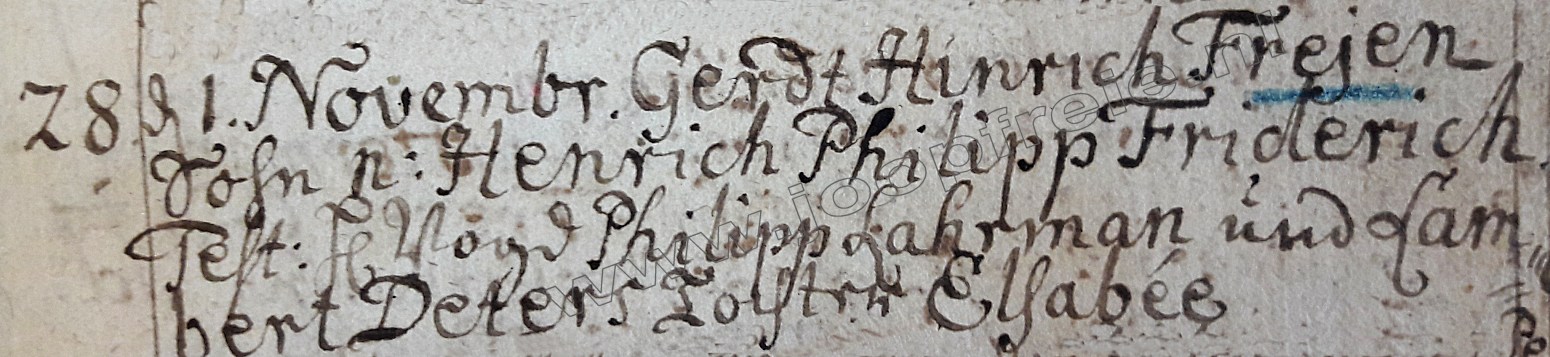 28. d 1. Novembr. Gerdt Hinrich Frejen
Sohn n: Henrich Philipp Friderich.
Test: H Vogd Philipp Lahrman und Lam
bert Deters Tochter Elsabée
www.jospfreie.nl